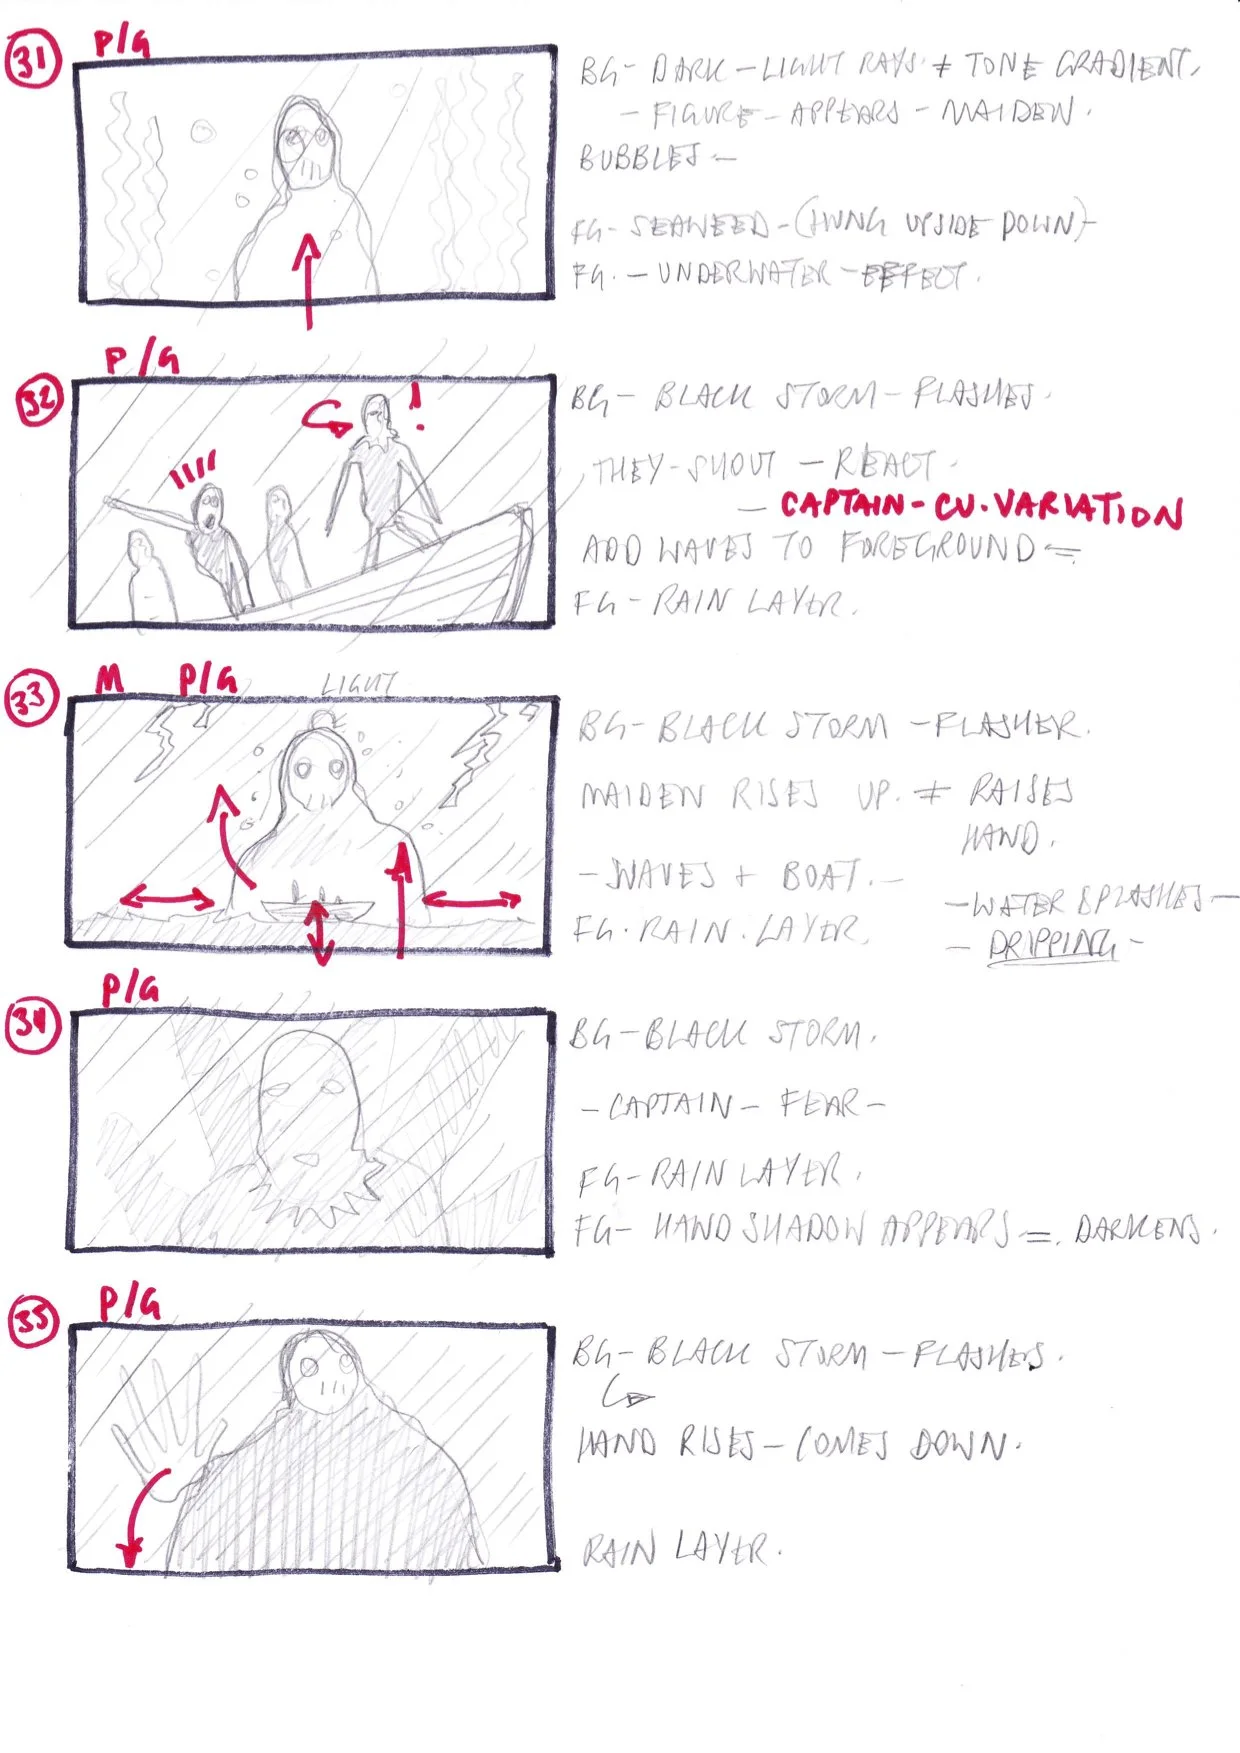 31
P/G
BG- DARK - LIGHT RAYS + TONE GRADIENT.
- FIGURE - APPEARS - MAIDEN.
BUBBLES -
FG- SEAWEED - (HUNG UPSIDE DOWN) -
FG. - UNDERWATER - EFFECT.
32
P/G
!
BG- BLACK STORM - FLASHES.
THEY - SHOUT - REACT -
- CAPTAIN - CU. VARIATION
ADD WAVES TO FOREGROUND =
FG - RAIN LAYER.
33
M P/G LIGHT
BG- BLACK STORM - FLASHER.
MAIDEN RISES UP. + RAISES
HAND.
- WAVES + BOAT. -
- WATER SPLASHES -
FG. RAIN. LAYER.
- DRIPPING -
34
P/G
BG- BLACK STORM.
- CAPTAIN - FEAR -
FG- RAIN LAYER.
FG- HAND SHADOW APPEARS =. DARKENS.
35
P/G
BG- BLACK STORM - FLASHES.
HAND RISES - COMES DOWN.
RAIN LAYER.